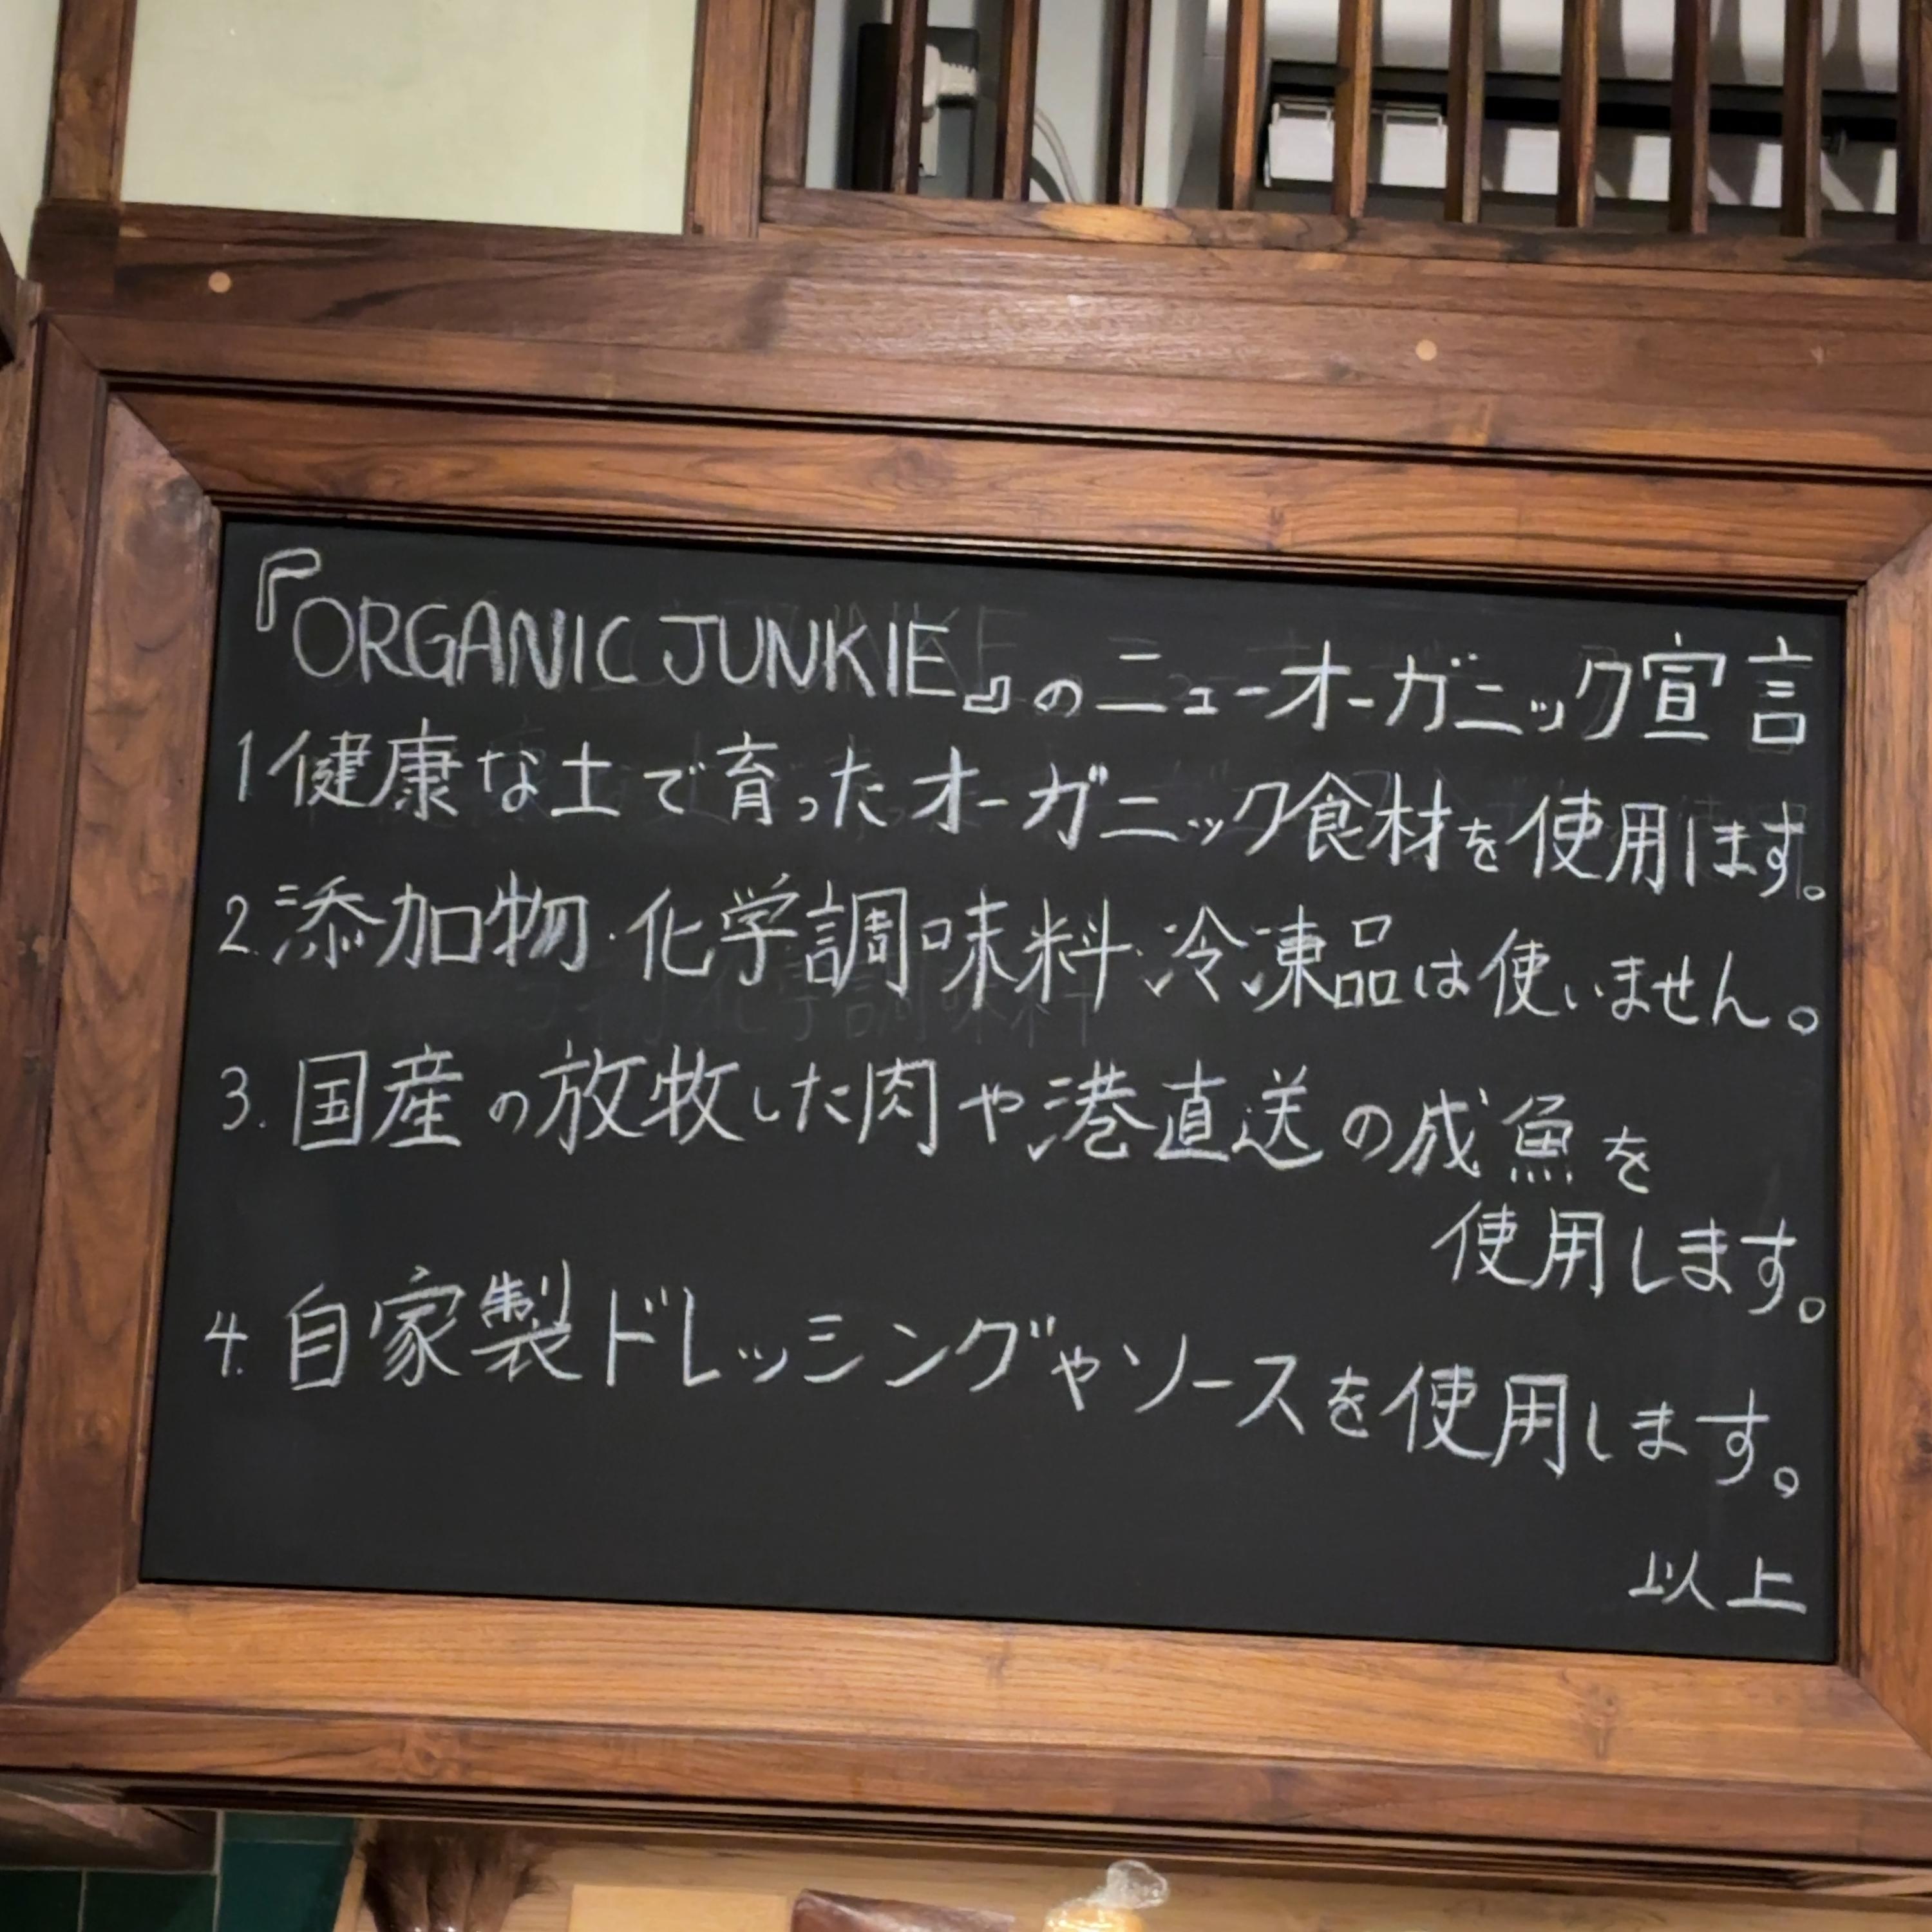 『ORGANIC JUNKIE』のニューオーガニック宣言
1 健康な土で育ったオーガニック食材を使用します。
2. 添加物・化学調味料・冷凍品は使いません。
3. 国産の放牧した肉や港直送の成魚を
使用します。
4. 自家製ドレッシングやソースを使用します。
以上